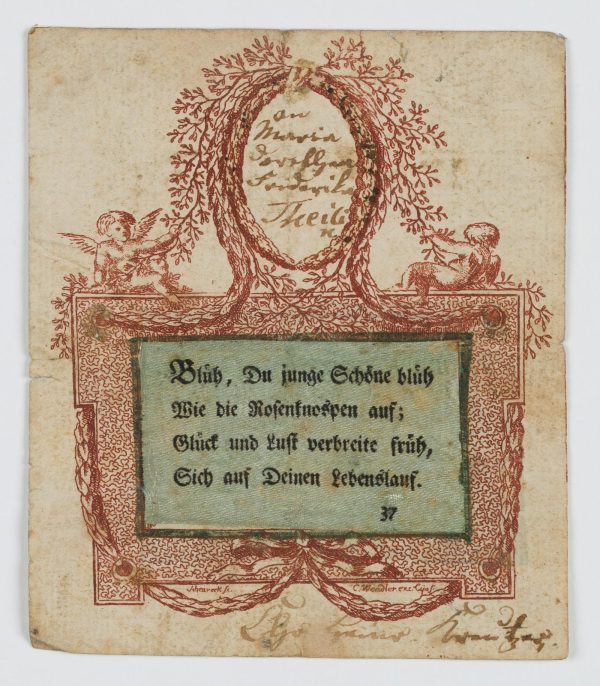 an
Maria
Dorothea
Friderika
Theili
n
Blüh, Du junge Schöne blüh
Wie die Rosenknospen auf;
Glück und Lust verbreite früh,
Sich auf Deinen Lebenslauf.
37